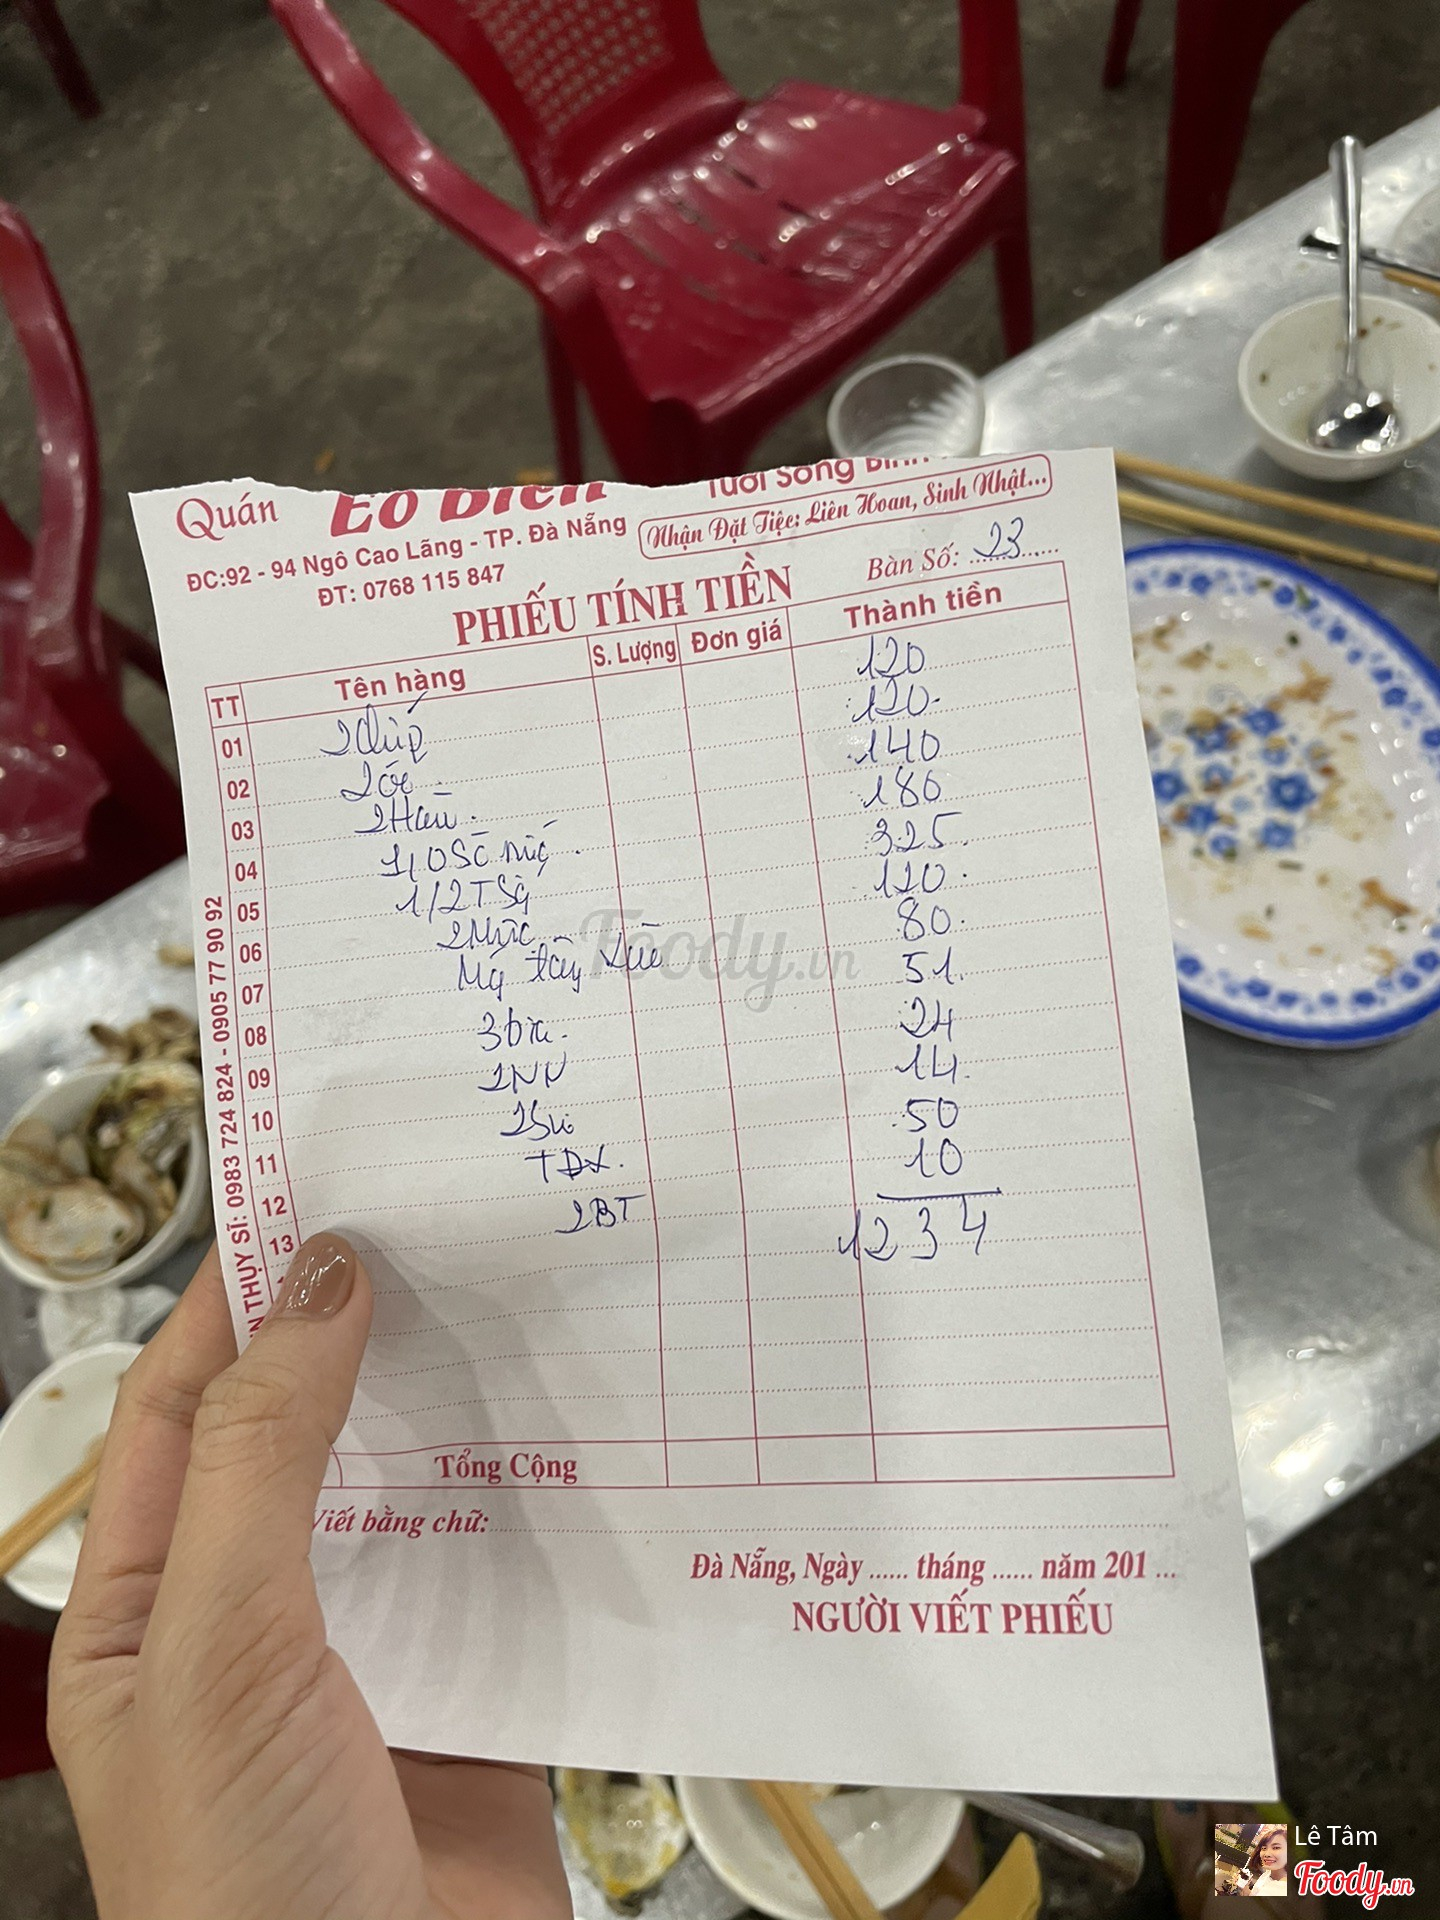 Quán Eo Biển Tươi Sống
ĐC:92 - 94 Ngô Cao Lãng - TP. Đà Nẵng
Nhận Đặt Tiệc: Liên Hoan, Sinh Nhật...
ĐT: 0768 115 847
Bàn Số: 23
PHIẾU TÍNH TIỀN
TT Tên hàng S. Lượng Đơn giá Thành tiền
01 120
02 2 ốc 120
03 2 Hàu 140
04 180
05 325
06 2 Mực 120
07 80
08 3 bia 51
09 2NN 24
10 14
11 TDX 50
12 2BT 10
13 1234
THỤY SĨ: 0983 724 824 - 0905 77 90 92
Tổng Cộng
Viết bằng chữ:
Đà Nẵng, Ngày ...... tháng ...... năm 201 ...
NGƯỜI VIẾT PHIẾU
Foody.vn
Lê Tâm
Foody.vn